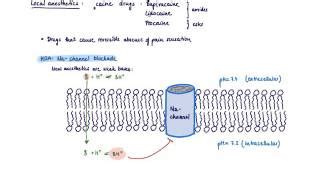 Local anesthetics : "caine drugs : Bupivacaine
Lidocaine
Procaine
amides
esters
• Drugs that cause reversible absence of pain sensation
MOA: Na-channel blockade
Local anesthetics are weak bases:
B + H⁺ ⇌ BH⁺
pH= 7.4 (extracellular)
Na-
channel
pH= 7.2 (intracellular)
B + H⁺ ⇌ BH⁺